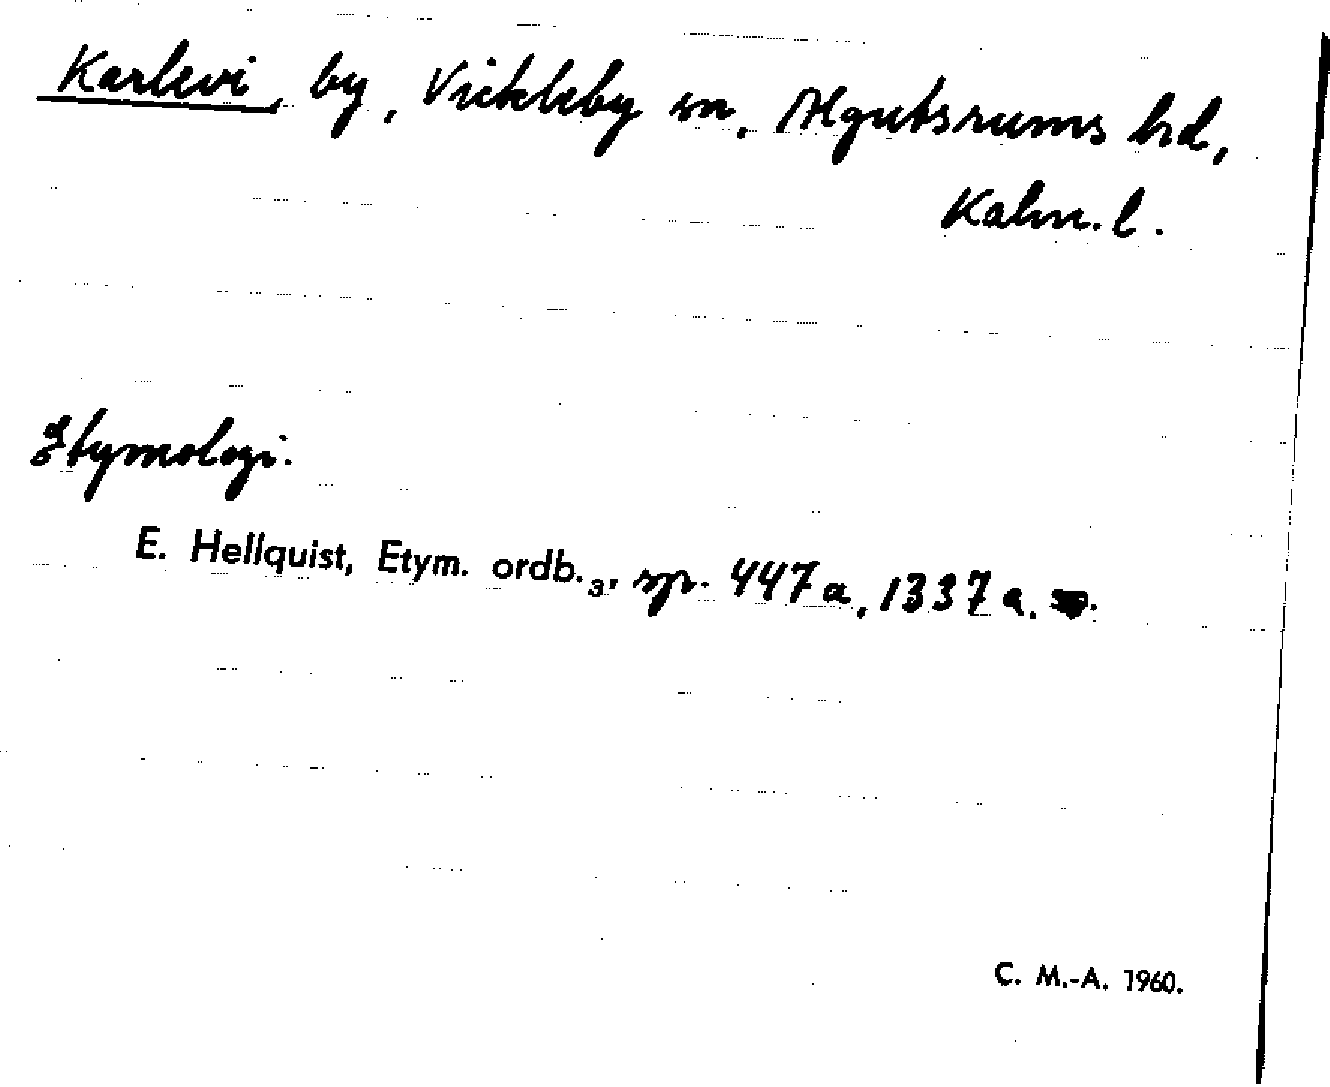 Karlevi, by, Vickleby sn, Algutsrums hd,
Kalm. l.
Etymologi.
E. Hellquist, Etym. ordb.3, sp. 447 a, 1337 a.
C. M.-A. 1960.